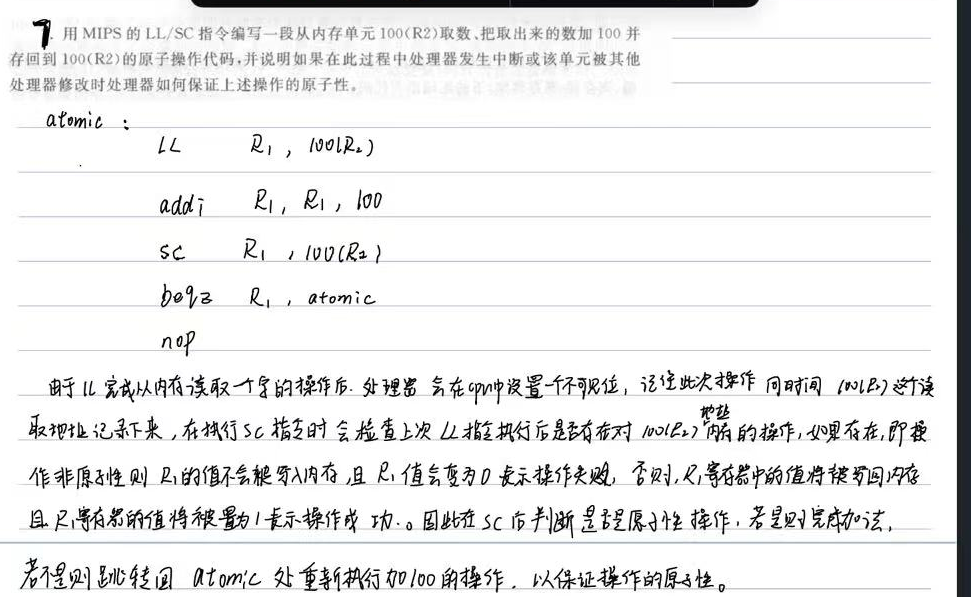 7. 用 MIPS 的 LL/SC 指令编写一段从内存单元 100(R2)取数、把取出来的数加 100 并
存回到 100(R2)的原子操作代码,并说明如果在此过程中处理器发生中断或该单元被其他
处理器修改时处理器如何保证上述操作的原子性。
atomic :
LL R1 , 100(R2)
addi R1, R1, 100
sc R1 , 100(R2)
beqz R1 , atomic
nop
由于 LL 完成从内存读取一个字的操作后. 处理器 会在cpu中设置一个不可见位, 记住此次操作 同时间 100(R2) 这个读
取地址记录下来, 在执行 SC 指令时 会检查上次 LL 指令执行后是否有存对 100(R2) 地址内存的操作, 如果存在, 即操
作非原子性则 R1的值不会被写入内存, 且 R1 值会变为 0 表示操作失败, 否则, R1寄存器中的值将被写回内存
且 R1寄存器的值将被置为1表示操作成 功.。因此在 SC 后判断是否是原子性操作, 若是则完成加法,
若不是则跳转回 atomic 处重新执行加100的操作. 以保证操作的原子性。